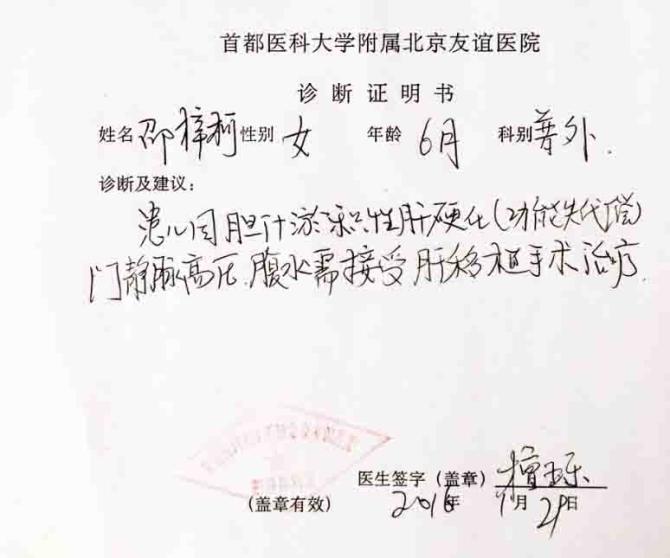 首都医科大学附属北京友谊医院
诊断证明书
姓名 邵梓柯 性别 女 年龄 6月 科别 普外.
诊断及建议：
患儿因胆汁淤积性肝硬化(功能失代偿)
门静脉高压.腹水需接受肝移植手术治疗.
医生签字（盖章）
(盖章有效) 2016年 月 21日